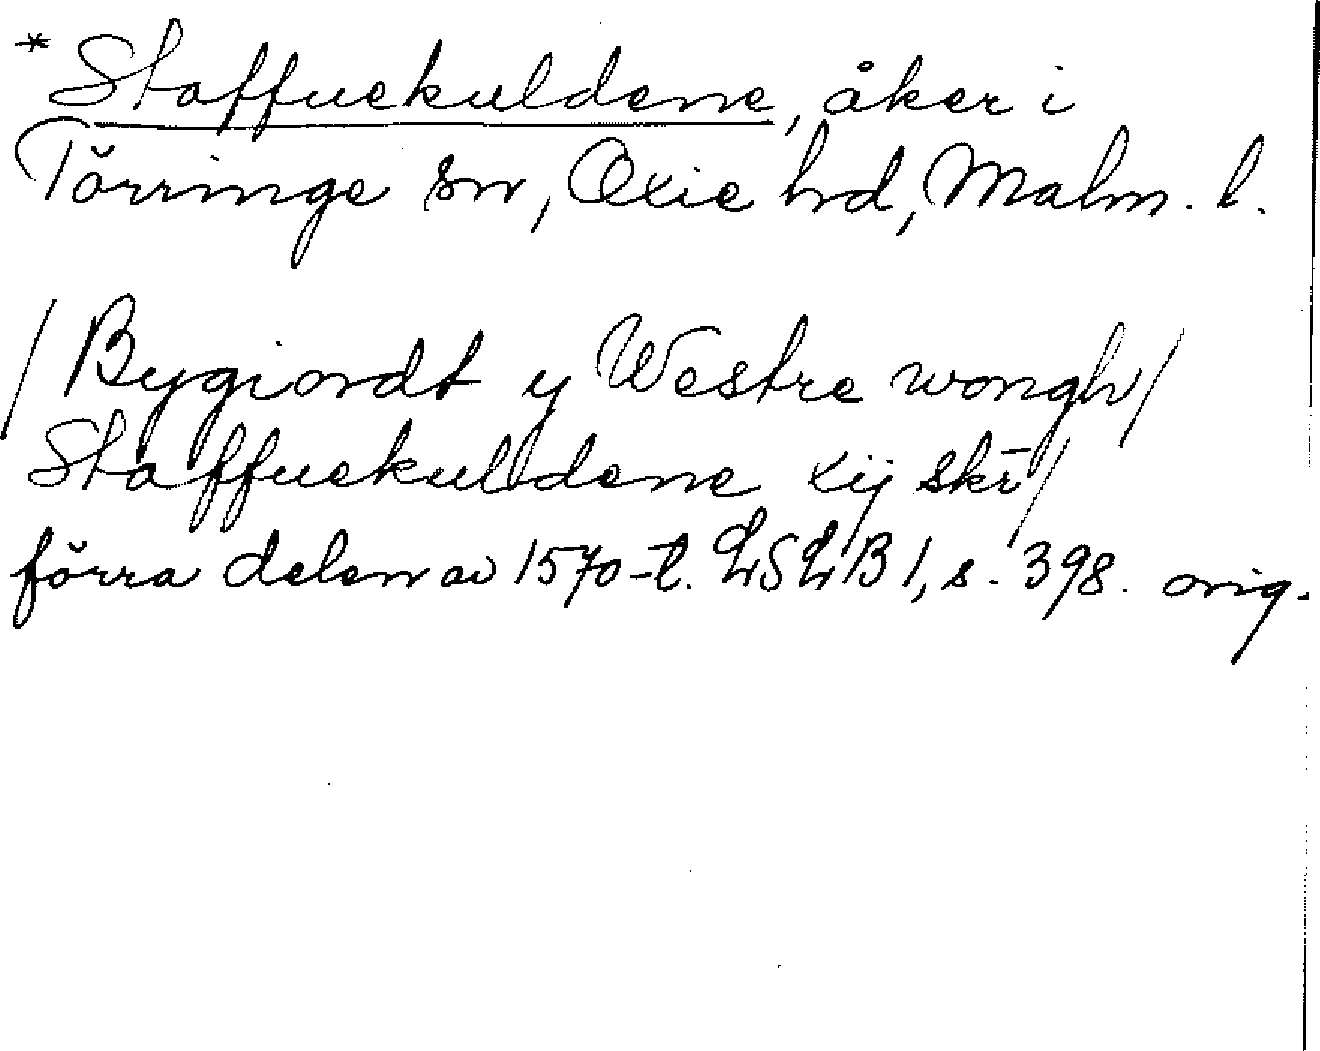 * Staffuekuldene, åker i
Törringe sn, Oxie hd, Malm. l.
/ Bygiordt y Westre wongh /
Staffuekuldene xij skr /
förra delen av 1570-t. LSLB 1, s. 398. orig.